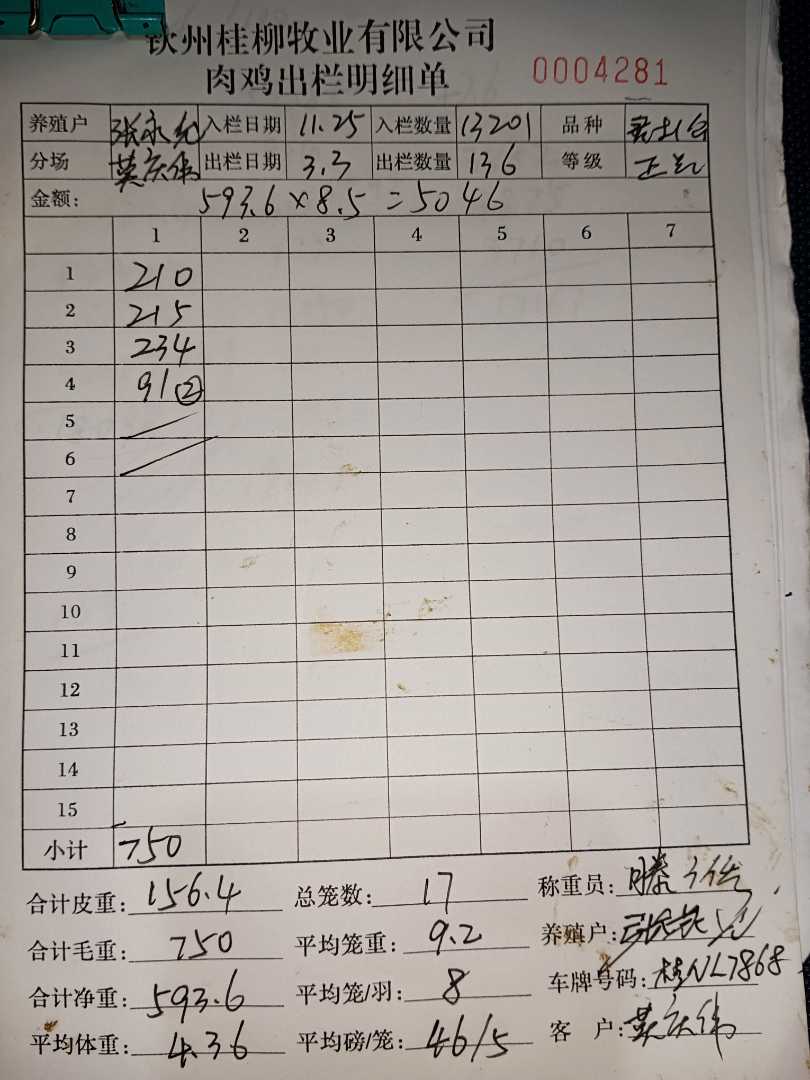 钦州桂柳牧业有限公司
肉鸡出栏明细单 0004281
养殖户 张永 入栏日期 11.25 入栏数量 13201 品种
分场 莫庆伟 出栏日期 3.3 出栏数量 136 等级 正
金额: 593.6×8.5=5046
1 2 3 4 5 6 7
1 210
2 215
3 234
4 91②
5
6
7
8
9
10
11
12
13
14
15
小计 750
合计皮重: 156.4 总笼数: 17 称重员: 滕
合计毛重: 750 平均笼重: 9.2 养殖户: 张
合计净重: 593.6 平均笼/羽: 8 车牌号码: 桂NL7868
平均体重: 4.36 平均磅/笼: 46/5 客户: 莫庆伟